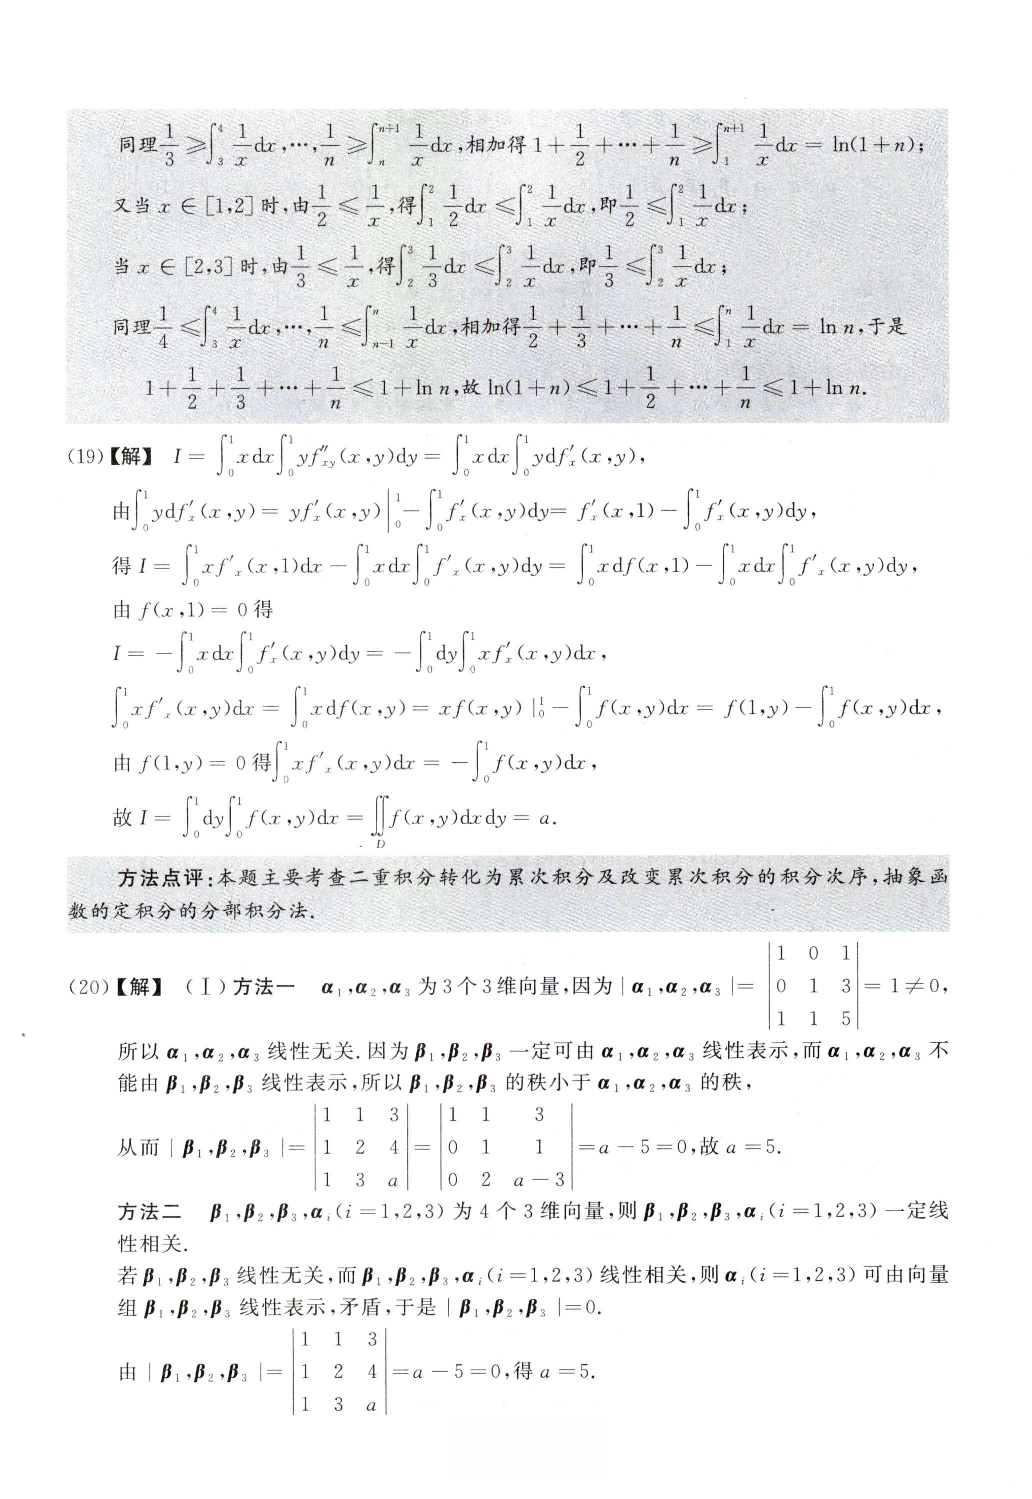 同理 1/3 ≥ ∫_3^4 1/x dx,⋯,1/n ≥ ∫_n^{n+1} 1/x dx,相加得 1 + 1/2 + ⋯ + 1/n ≥ ∫_1^{n+1} 1/x dx = ln(1+n);
又当 x ∈ [1,2] 时,由 1/2 ≤ 1/x,得 ∫_1^2 1/2 dx ≤ ∫_1^2 1/x dx,即 1/2 ≤ ∫_1^2 1/x dx;
当 x ∈ [2,3] 时,由 1/3 ≤ 1/x,得 ∫_2^3 1/3 dx ≤ ∫_2^3 1/x dx,即 1/3 ≤ ∫_2^3 1/x dx;
同理 1/4 ≤ ∫_3^4 1/x dx,⋯,1/n ≤ ∫_{n-1}^n 1/x dx,相加得 1/2 + 1/3 + ⋯ + 1/n ≤ ∫_1^n 1/x dx = ln n,于是
1 + 1/2 + 1/3 + ⋯ + 1/n ≤ 1 + ln n,故 ln(1+n) ≤ 1 + 1/2 + ⋯ + 1/n ≤ 1 + ln n.
(19)【解】 I = ∫_0^1 xdx ∫_0^1 yf''_{xy}(x,y)dy = ∫_0^1 xdx ∫_0^1 ydf'_x(x,y),
由 ∫_0^1 ydf'_x(x,y) = yf'_x(x,y)|_0^1 − ∫_0^1 f'_x(x,y)dy = f'_x(x,1) − ∫_0^1 f'_x(x,y)dy,
得 I = ∫_0^1 xf'_x(x,1)dx − ∫_0^1 xdx ∫_0^1 f'_x(x,y)dy = ∫_0^1 xdf(x,1) − ∫_0^1 xdx ∫_0^1 f'_x(x,y)dy,
由 f(x,1) = 0 得
I = −∫_0^1 xdx ∫_0^1 f'_x(x,y)dy = −∫_0^1 dy ∫_0^1 xf'_x(x,y)dx,
∫_0^1 xf'_x(x,y)dx = ∫_0^1 xdf(x,y) = xf(x,y)|_0^1 − ∫_0^1 f(x,y)dx = f(1,y) − ∫_0^1 f(x,y)dx,
由 f(1,y) = 0 得 ∫_0^1 xf'_x(x,y)dx = −∫_0^1 f(x,y)dx,
故 I = ∫_0^1 dy ∫_0^1 f(x,y)dx = ∬_D f(x,y)dxdy = a.
方法点评:本题主要考查二重积分转化为累次积分及改变累次积分的积分次序,抽象函
数的定积分的分部积分法.
(20)【解】 (Ⅰ)方法一 α₁,α₂,α₃ 为 3 个 3 维向量,因为 |α₁,α₂,α₃| = |1 0 1; 0 1 3; 1 1 5| = 1 ≠ 0,
所以 α₁,α₂,α₃ 线性无关.因为 β₁,β₂,β₃ 一定可由 α₁,α₂,α₃ 线性表示,而 α₁,α₂,α₃ 不
能由 β₁,β₂,β₃ 线性表示,所以 β₁,β₂,β₃ 的秩小于 α₁,α₂,α₃ 的秩,
从而 |β₁,β₂,β₃| = |1 1 3; 1 2 4; 1 3 a| = |1 1 3; 0 1 1; 0 2 a−3| = a − 5 = 0,故 a = 5.
方法二 β₁,β₂,β₃,αᵢ(i = 1,2,3) 为 4 个 3 维向量,则 β₁,β₂,β₃,αᵢ(i = 1,2,3) 一定线
性相关.
若 β₁,β₂,β₃ 线性无关,而 β₁,β₂,β₃,αᵢ(i = 1,2,3) 线性相关,则 αᵢ(i = 1,2,3) 可由向量
组 β₁,β₂,β₃ 线性表示,矛盾,于是 |β₁,β₂,β₃| = 0.
由 |β₁,β₂,β₃| = |1 1 3; 1 2 4; 1 3 a| = a − 5 = 0,得 a = 5.